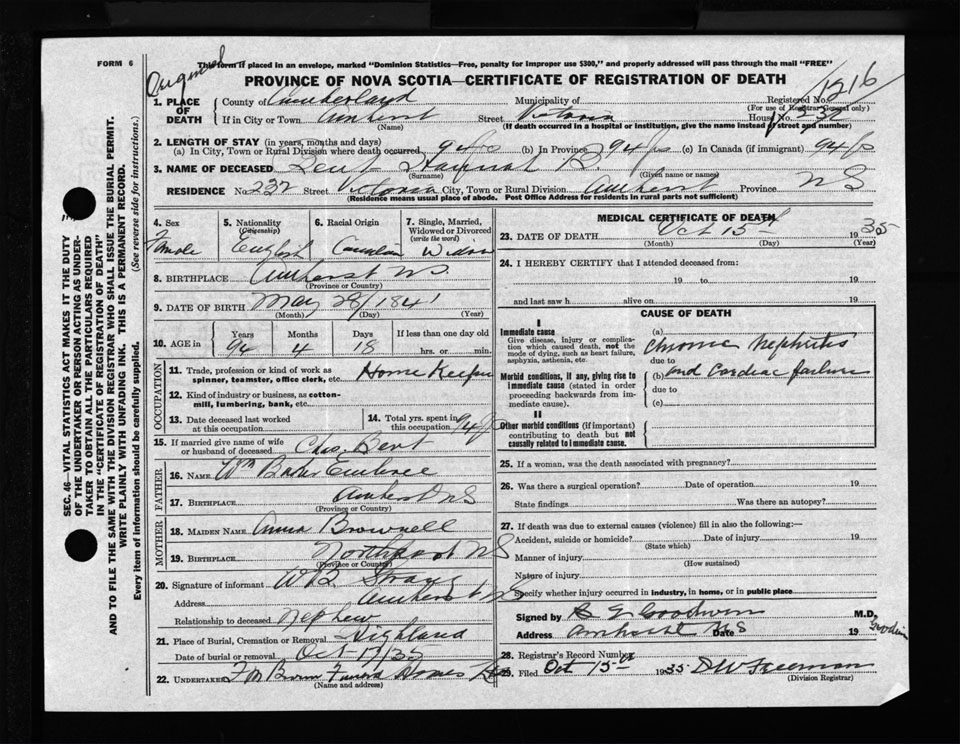 FORM 6
Original
This form if placed in an envelope, marked "Dominion Statistics—Free, penalty for improper use $300," and properly addressed will pass through the mail "FREE"
PROVINCE OF NOVA SCOTIA—CERTIFICATE OF REGISTRATION OF DEATH
1216
1. PLACE OF DEATH
County of Cumberland Municipality of Registered No.
(For use of Registrar General only)
If in City or Town Amherst Street Victoria House No. 232
(Name) (If death occurred in a hospital or institution, give the name instead of street and number)
2. LENGTH OF STAY (in years, months and days)
(a) In City, Town or Rural Division where death occurred 94 (b) In Province 94 (c) In Canada (if immigrant) 94
3. NAME OF DECEASED Hannah B.
(Surname) (Given name or names)
RESIDENCE No. 232 Street Victoria City, Town or Rural Division Amherst Province N S
(Residence means usual place of abode. Post Office Address for residents in rural parts not sufficient)
4. Sex Female
5. Nationality (Citizenship) English
6. Racial Origin Canadian
7. Single, Married, Widowed or Divorced (write the word) Widow
8. BIRTHPLACE Amherst NS.
(Province or Country)
9. DATE OF BIRTH May 28/1841
(Month) (Day) (Year)
10. AGE in Years Months Days If less than one day old
94 4 18 hrs. or min.
OCCUPATION
11. Trade, profession or kind of work as spinner, teamster, office clerk, etc. Home Keeper
12. Kind of industry or business, as cotton-mill, lumbering, bank, etc.
13. Date deceased last worked at this occupation
14. Total yrs. spent in this occupation 94
15. If married give name of wife or husband of deceased Chas. Bent
FATHER
16. NAME Wm Embree
17. BIRTHPLACE Amherst NS
(Province or Country)
MOTHER
18. MAIDEN NAME Anna Brownell
19. BIRTHPLACE Northport NS
(Province or Country)
20. Signature of informant W B
Address Amherst NS
Relationship to deceased Nephew
21. Place of Burial, Cremation or Removal Highland
Date of burial or removal Oct 17/35
22. UNDERTAKER Funeral Homes
(Name and address)
MEDICAL CERTIFICATE OF DEATH
23. DATE OF DEATH Oct 15th 1935
(Month) (Day) (Year)
24. I HEREBY CERTIFY that I attended deceased from:
19 to 19
and last saw h alive on 19
CAUSE OF DEATH
I
Immediate cause
Give disease, injury or complication which caused death, not the mode of dying, such as heart failure, asphyxia, asthenia, etc.
(a) Chronic Nephritis
due to
Morbid conditions, if any, giving rise to immediate cause (stated in order proceeding backwards from immediate cause).
(b) and Cardiac failure
due to
(c)
II
Other morbid conditions (if important) contributing to death but not causally related to immediate cause.
25. If a woman, was the death associated with pregnancy?
26. Was there a surgical operation? Date of operation 19
State findings Was there an autopsy?
27. If death was due to external causes (violence) fill in also the following:—
Accident, suicide or homicide? Date of injury 19
(State which)
Manner of injury
(How sustained)
Nature of injury
Specify whether injury occurred in industry, in home, or in public place
Signed by Goodwin M.D.
Address Amherst NS Date 19
28. Registrar's Record Number
29. Filed Oct 15th 1935 D W Freeman
(Division Registrar)
SEC. 46—VITAL STATISTICS ACT MAKES IT THE DUTY
OF THE UNDERTAKER OR PERSON ACTING AS UNDERTAKER TO OBTAIN ALL THE PARTICULARS REQUIRED
IN THE "CERTIFICATE OF REGISTRATION OF DEATH"
AND TO FILE THE SAME WITH THE DIVISION REGISTRAR WHO SHALL ISSUE THE BURIAL PERMIT.
WRITE PLAINLY WITH UNFADING INK. THIS IS A PERMANENT RECORD.
Every item of information should be carefully supplied. (See reverse side for instructions.)